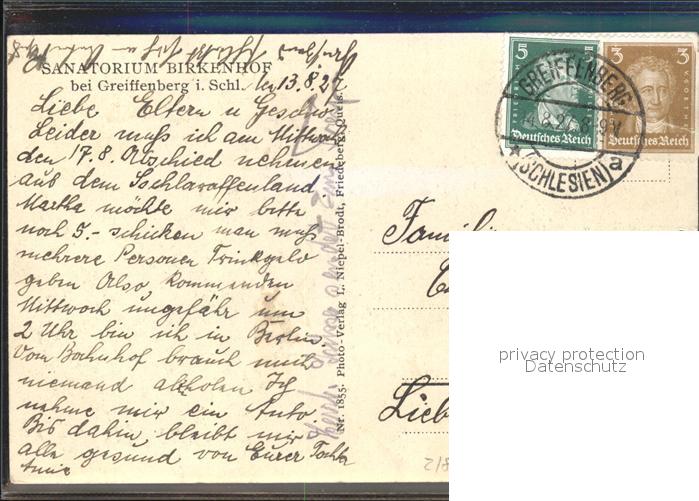 SANATORIUM BIRKENHOF
bei Greiffenberg i. Schl.
13.8.27
Liebe Eltern u Geschw.
Leider muß ich am Mittwoch
den 17.8. Abschied nehmen
aus dem Schlaraffenland
Martha möchte mir bitte
noch 5.- schicken man muß
mehrere Personen Trinkgeld
geben Also, kommenden
Mittwoch ungefähr um
2 Uhr bin ich in Berlin.
Vom Bahnhof brauch mich
niemand abholen Ich
nehme mir ein Auto
Bis dahin, bleibt mir
alle gesund von Eurer Tochter
Nr. 1855. Photo-Verlag L. Niepel-Brodt, Friedeberg, Queis.
5
Deutsches Reich
3
Deutsches Reich
GREIFFENBERG
(SCHLESIEN) a
Famili
Lieb
privacy protection
Datenschutz